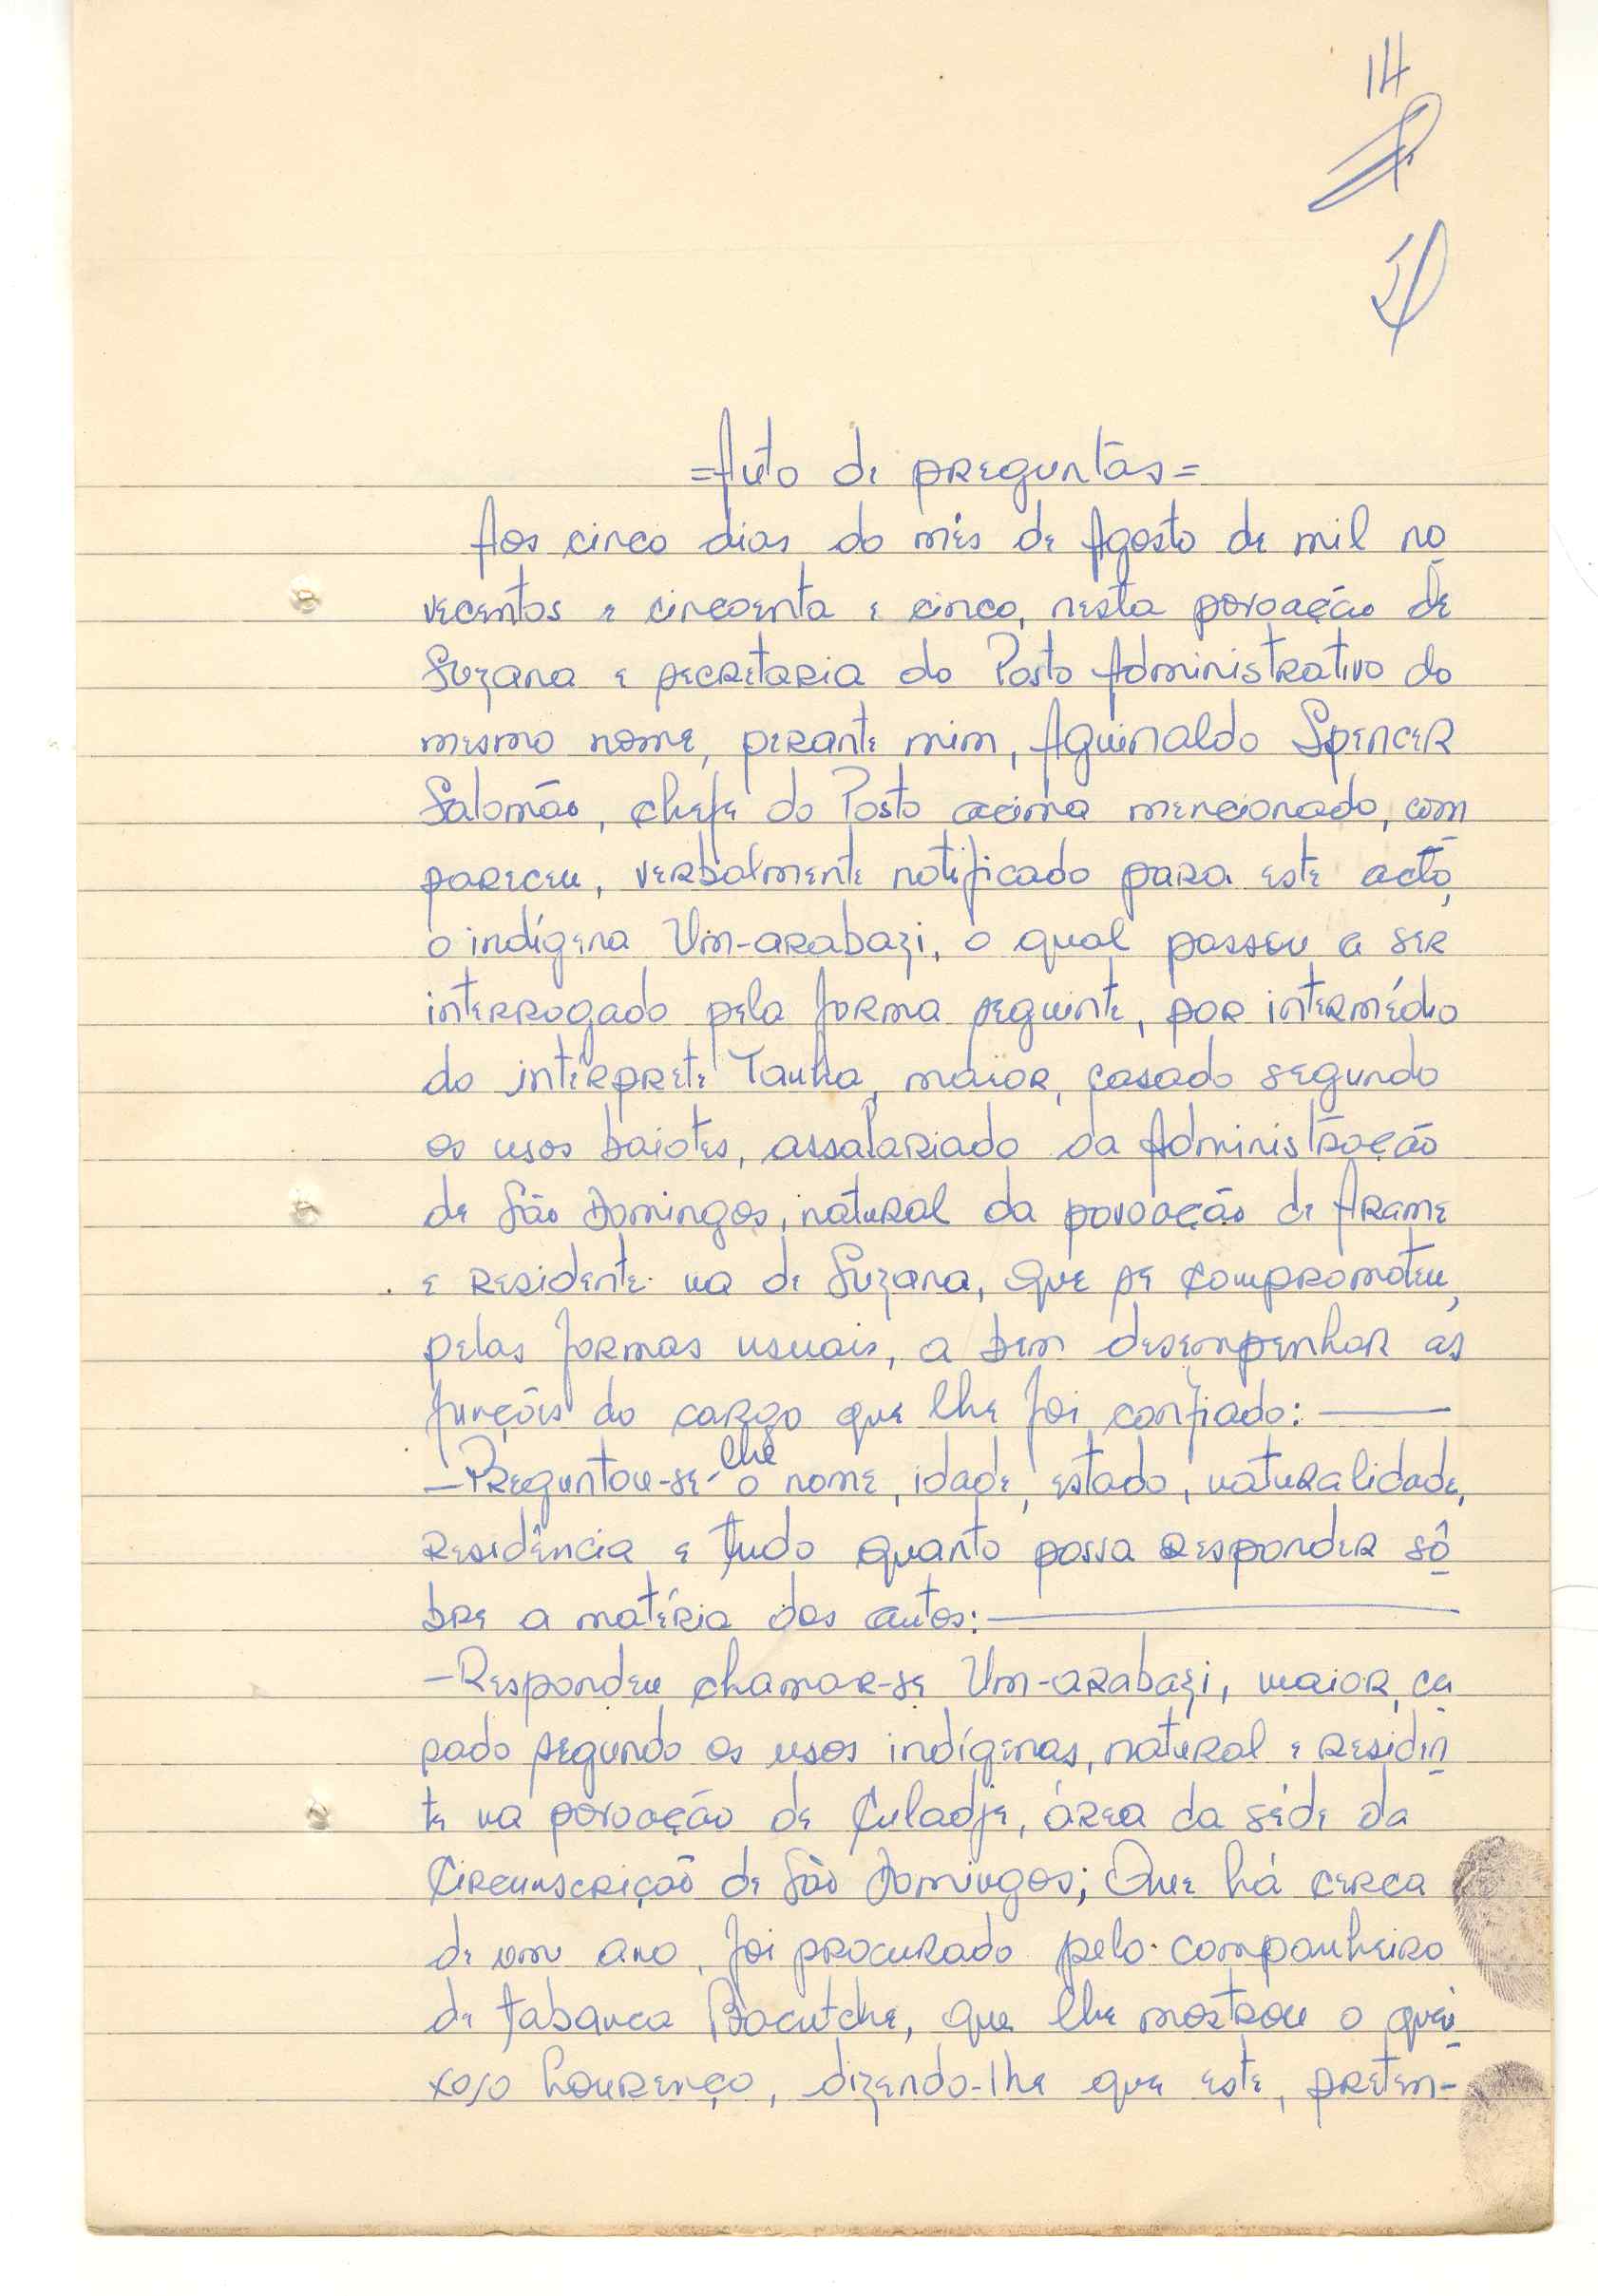 14
=Auto de preguntas=
Aos cinco dias do mês de Agosto de mil no
vecentos e cincoenta e cinco, nesta povoação de
Suzana e secretaria do Posto Administrativo do
mesmo nome, perante mim, Aguinaldo Spencer
Salomão, chefe do Posto acima mencionado, com
pareceu, verbalmente notificado para este acto,
o indígena Um-arabazi, o qual passou a ser
interrogado pela forma seguinte, por intermédio
do intérprete Tauha, maior, casado segundo
os usos baiotes, assalariado da Administração
de São Domingos, natural da povoação de Arame
e residente na de Suzana, que se comprometeu,
pelas formas usuais, a bem desempenhar as
funções do cargo que lhe foi confiado:
—Preguntou-se-lhe o nome, idade, estado, naturalidade,
residência e tudo quanto possa responder sô
bre a matéria dos autos:
—Respondeu chamar-se Um-arabazi, maior, ca
sado segundo os usos indígenas, natural e residen
te na povoação de Culadje, área da séde da
Circunscrição de São Domingos; Que há cerca
de um ano, foi procurado pelo companheiro
de tabanca Bacutche, que lhe mostrou o quei
xoso Lourenço, dizendo-lhe que este, preten-